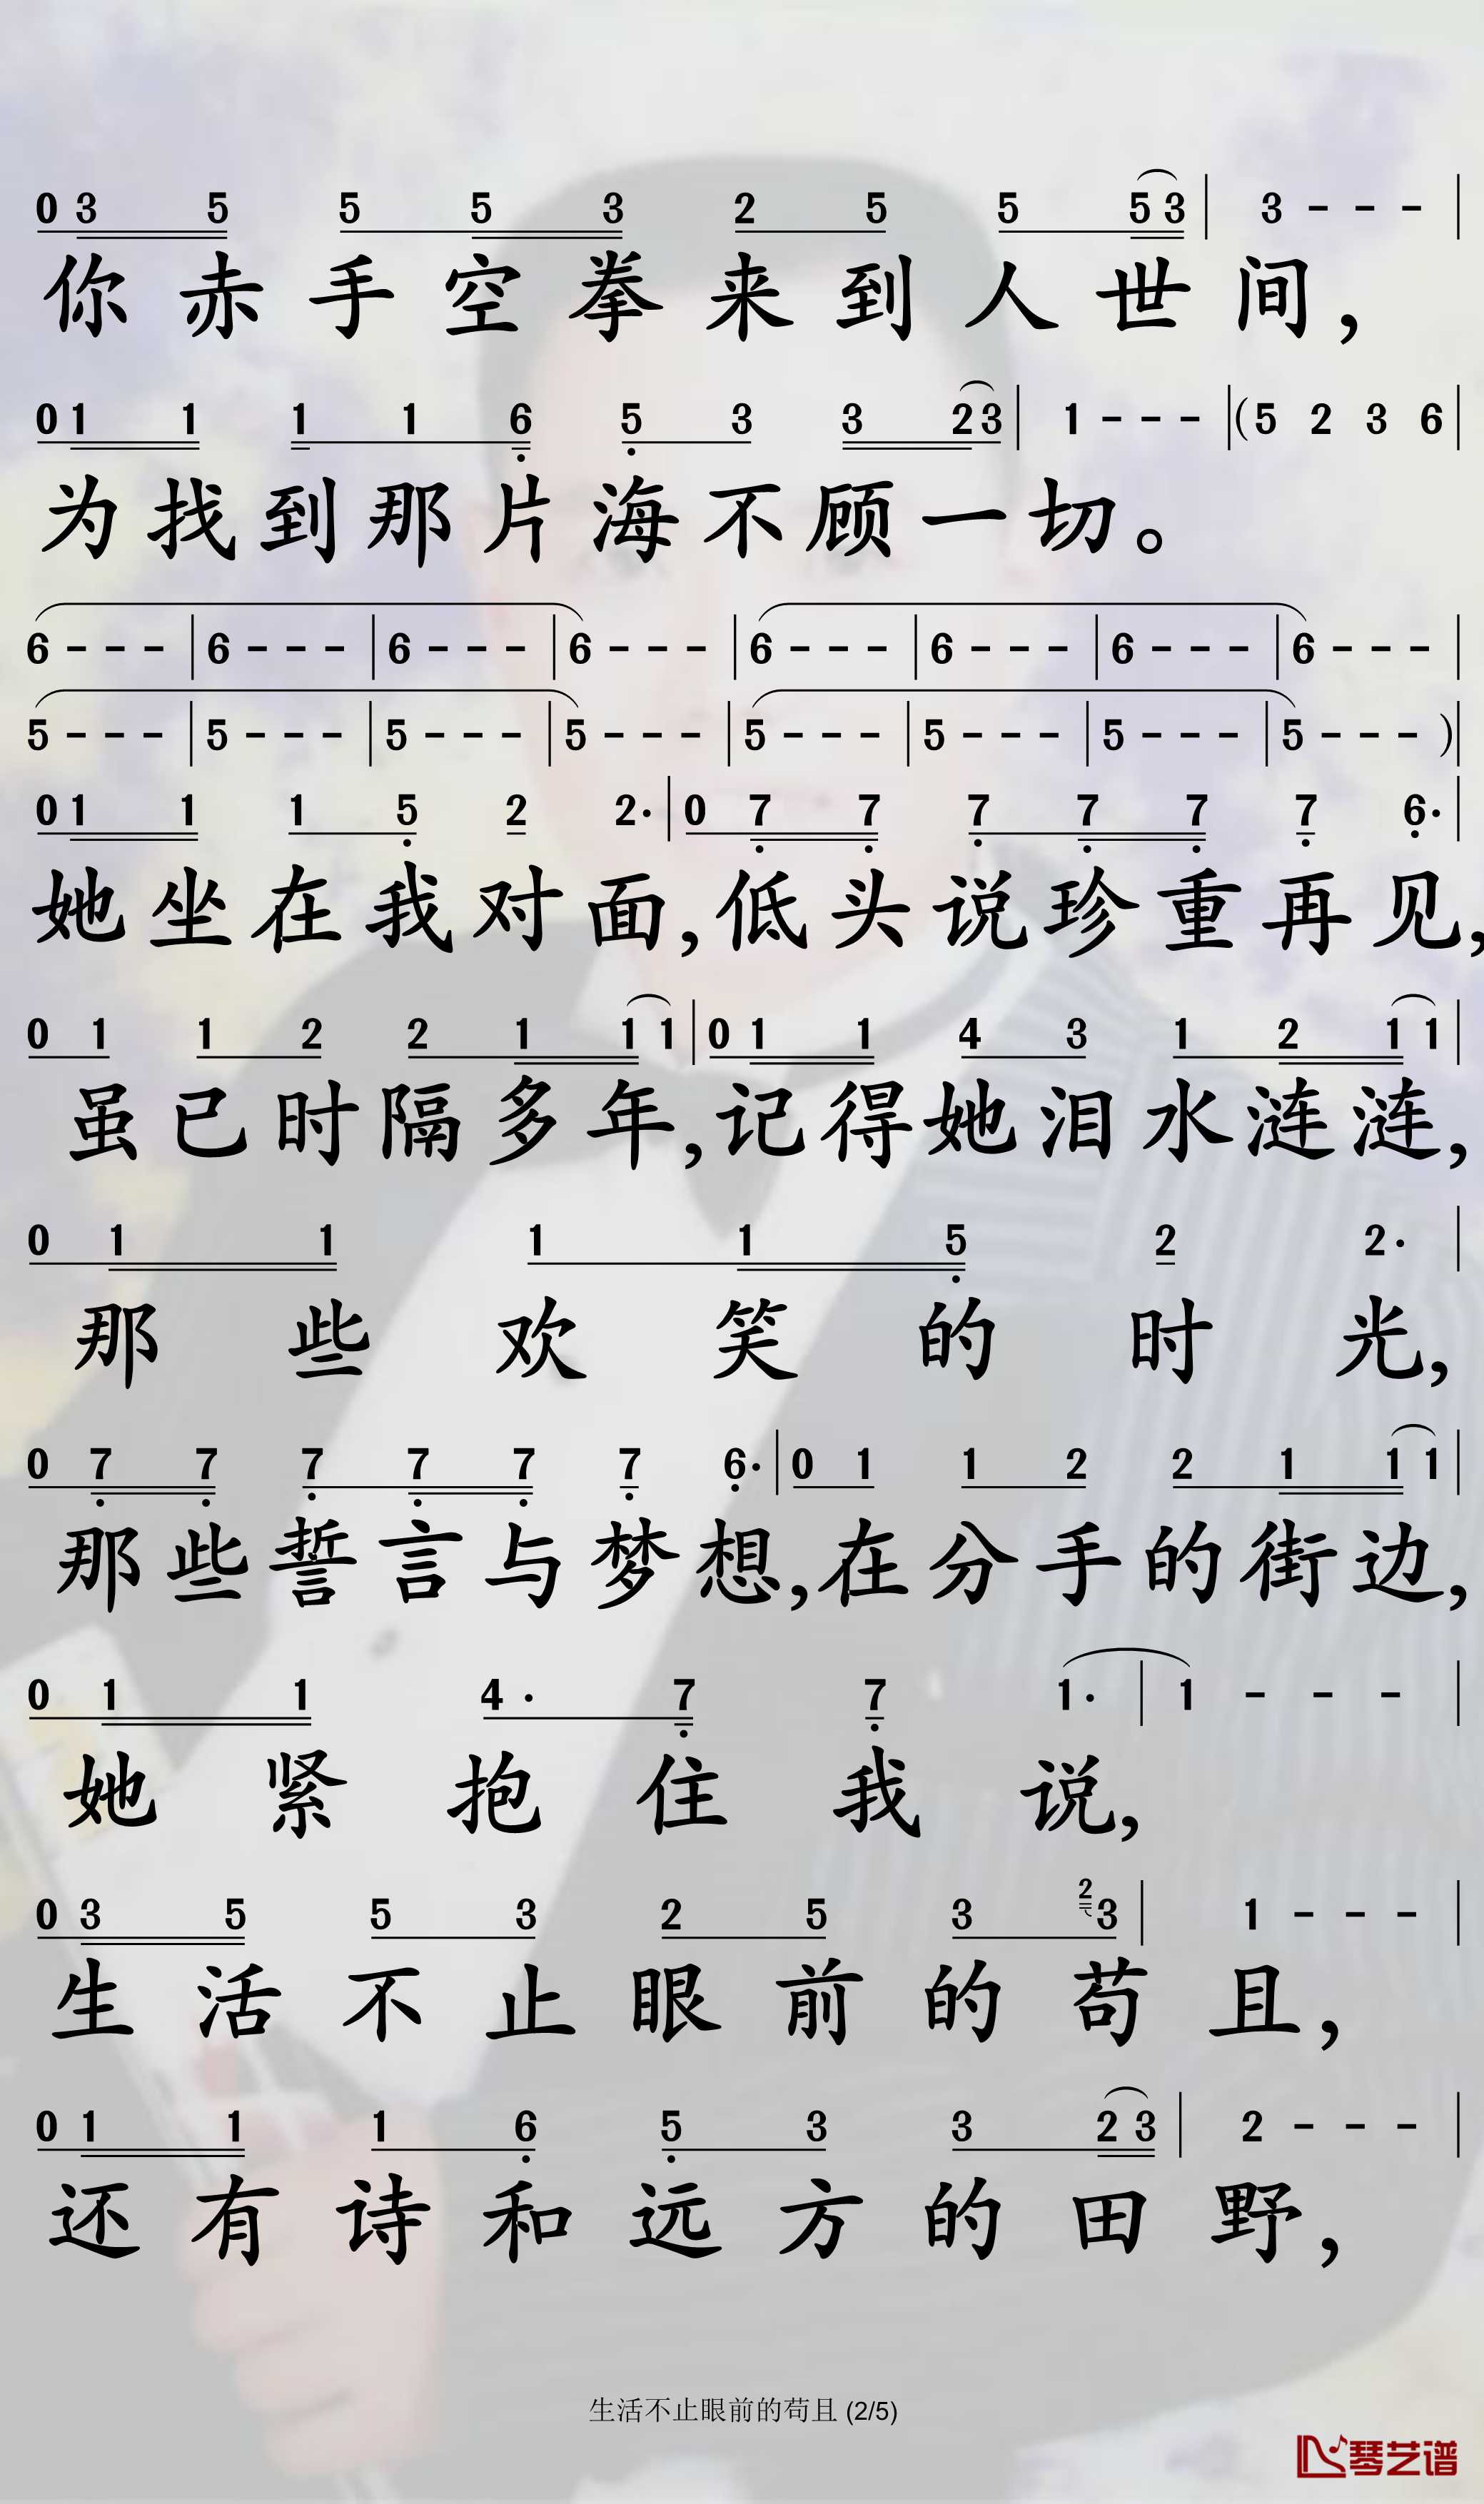 0 3 5 5 5 3 2 5 5 5 3 | 3 - - - |
你赤手空拳来到人世间，
0 1 1 1 1 6 5 3 3 2 3 | 1 - - - | (5 2 3 6 |
为找到那片海不顾一切。
6 - - - | 6 - - - | 6 - - - | 6 - - - | 6 - - - | 6 - - - | 6 - - - | 6 - - - |
5 - - - | 5 - - - | 5 - - - | 5 - - - | 5 - - - | 5 - - - | 5 - - - | 5 - - - ) |
0 1 1 1 5 2 2· | 0 7 7 7 7 7 7 6· |
她坐在我对面，低头说珍重再见，
0 1 1 2 2 1 1 1 | 0 1 1 4 3 1 2 1 1 |
虽已时隔多年，记得她泪水涟涟，
0 1 1 1 1 5 2 2· |
那些欢笑的时光，
0 7 7 7 7 7 7 6· | 0 1 1 2 2 1 1 1 |
那些誓言与梦想，在分手的街边，
0 1 1 4· 7 7 1· | 1 - - - |
她紧抱住我说，
0 3 5 5 3 2 5 3 2 3 | 1 - - - |
生活不止眼前的苟且，
0 1 1 1 6 5 3 3 2 3 | 2 - - - |
还有诗和远方的田野，
生活不止眼前的苟且 (2/5)
琴艺谱